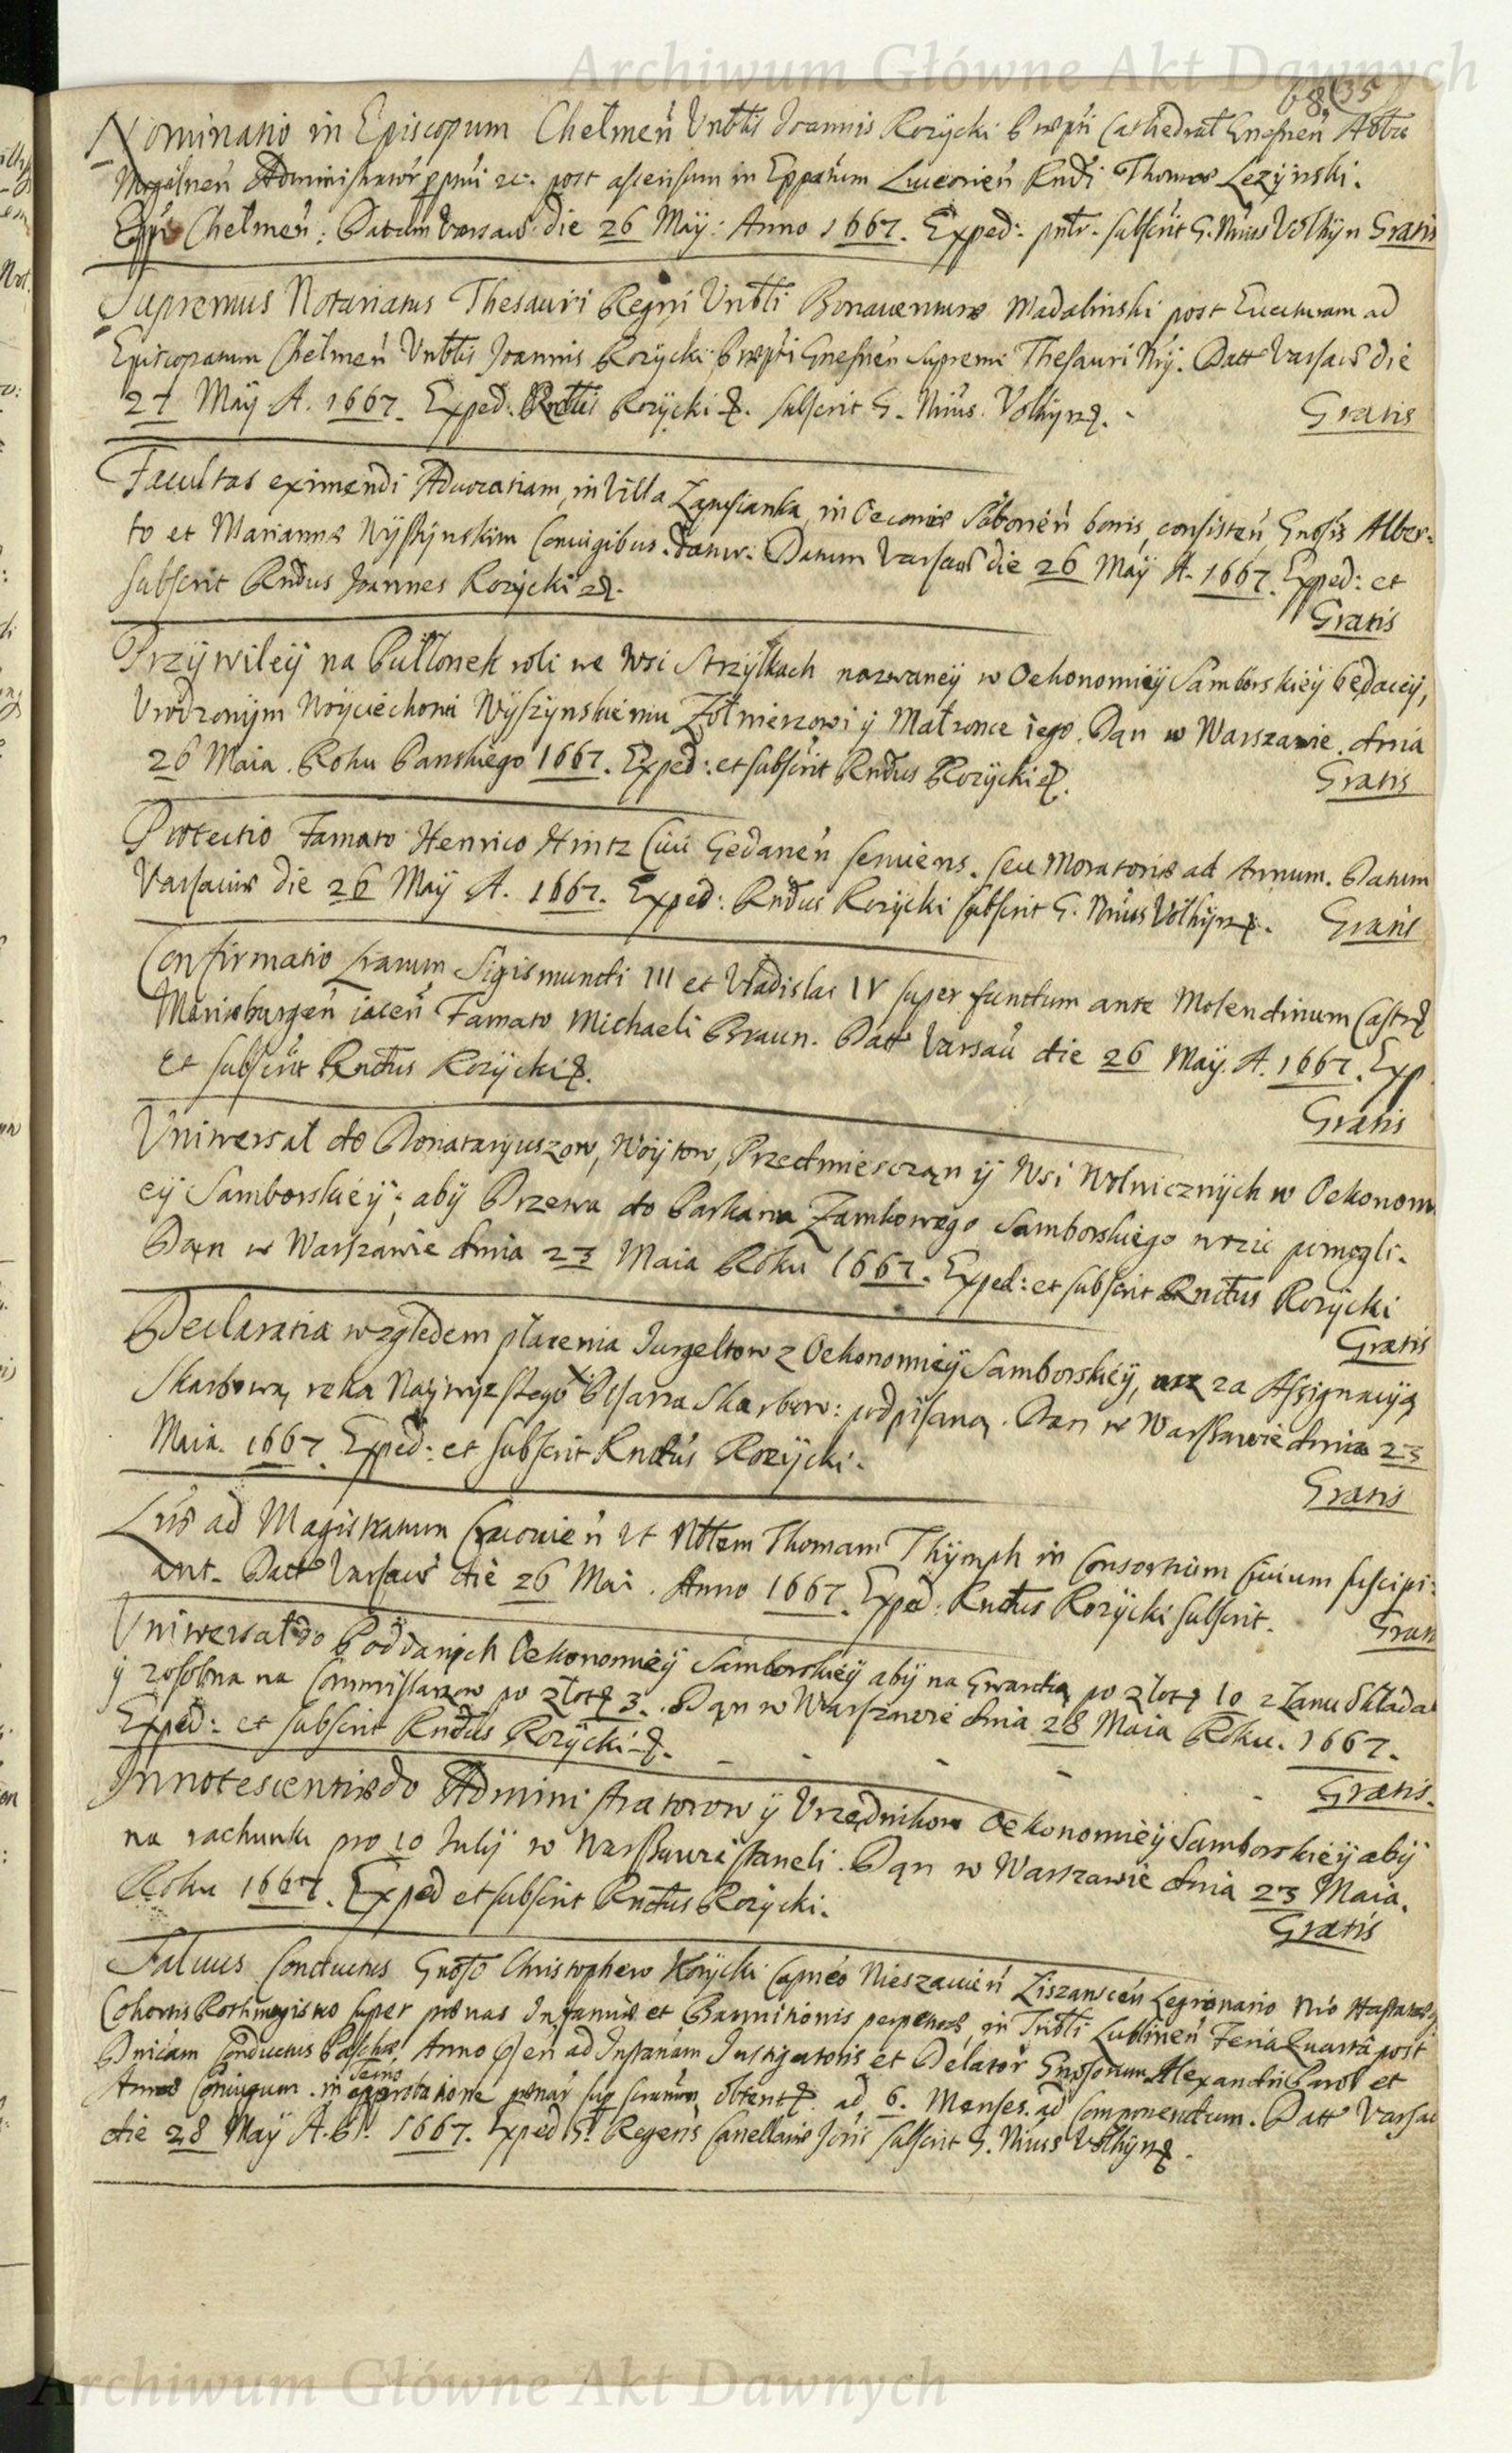 Archiwum Główne Akt Dawnych
68 (35
Nominatio in Episcopum Chelmeń Vnbtis Joannis Rozycki Prptti Cathedrat Gnesneń Abba
Administrator ppttui etc. post ascensum in Eppatum Luceorień Rndi Thomæ Lezynski.
Eppi Chelmeń: Datum Varsaw die 26 May: Anno 1667. Exped: pntr. subscrit G. Nrius Volhyn Gratis
Supremus Notariatus Thesauri Regni Vnbti Bonaventuræ Madalinski post Euecturam ad
Episcopatum Chelmeń Vnbtis Joannis Rozycki Prptti Gnesneń Supremi Thesauri Nrij. Datt Varsaviæ die
27 May A. 1667. Exped. Rndus Rozycki subscrit G. Nrius Volhyn.
Gratis
Facultas eximendi Aduocatiam, in Villa Zapusianka, in Oeconiæ Saborień bonis, consisteń, Gnosis Alber-
to et Mariannæ Wyszynskim Coniugibus. datur. Datum Varsaviæ die 26 May A. 1667. Exped: et
subscrit Rndus Joannes Rozycki
Gratis
Przywiley na Pułłonek roli we Wsi Strzyłkach nazwaney w Oekonomiey Samborskiey będącey,
Vrodzonym Woyciechowi Wyszynskiemu Zołnierzowi y Małzonce iego. Dan w Warszawie. dnia
26 Maia. Roku Panskiego 1667. Exped: et subscrit Rndus Rozycki
Gratis
Protectio Famato Henrico Hintz Ciui Gedaneń seruiens. seu Moratoriæ ad Annum. Datum
Varsauiæ die 26 May A. 1667. Exped: Rndus Rozycki subscrit G. Nrius Volhyn. Gratis
Confirmatio Lrarum Sigismundi III et Vladislai IV super fundum ante Molendinum Castri
Mariæburgeń iaceń Famato Michaeli Braun. Datt Varsau die 26 May. A. 1667. Exp
et subscrit Rndus Rozycki.
Gratis
Vniwersał do Donataryuszow, Woytow, Przedmiesczan y Wsi Wolnicznych w Oekonom
ey Samborskiey; aby Drzewa do Parkana Zamkowego Samborskiego wozić pomogli.
Dan w Warszawie dnia 23 Maia Roku 1667. Exped: et subscrit Rndus Rozycki
Gratis
Declaratia względem płacenia Jurgeltow z Oekonomiey Samborskiey, za Assignacyą
Skarbową ręka Naywyzszego Pisarza Skarbow: podpisaną. Dan w Warszawie dnia 23
Maia. 1667. Exped: et subscrit Rndus Rozycki.
Gratis
Lræ ad Magistratum Cracouień vt Nbtem Thomam Thymph in Consortium Ciuium suscipi:
ant. Datt Varsaviæ die 26 Mai. Anno 1667. Exped: Rndus Rozycki subscrit. Gratis
Vniwersał do Poddanych Oekonomiey Samborskiey aby na Gwardią po złot 10 z Łanu składa
y zosobna na Commissarzow po złot 3. Dan w Warszawie dnia 28 Maia Roku. 1667.
Exped: et subscrit Rndus Rozycki.
Gratis.
Innotescentiæ do Administratorow y Vrzędnikow Oekonomiey Samborskiey aby
na rachunki pro 10 Julij w Warszawie staneli. Dan w Warszawie dnia 23 Maia.
Roku 1667. Exped et subscrit Rndus Rozycki.
Gratis
Saluus Conductus Gnoso Christophero Korycki Capneo Nieszawień Legionario Nro
Cohortis Rothmagistro super pœnas Infamiæ et Bannitionis perpetuæ, in Tribti Lublineń Feria Quarta post
Dnicam Conductus Paschæ Anno pseń ad Instanam Instigatoris et Delator Gnosorum Alexandri et
Annæ Coniugum. in Termino obtent. ad 6. Menses. ad componendum. Datt Varsau
die 28 May A. D. 1667. Exped G. Regens Canellariæ subscrit G. Nrius Volhyn.
Archiwum Główne Akt Dawnych